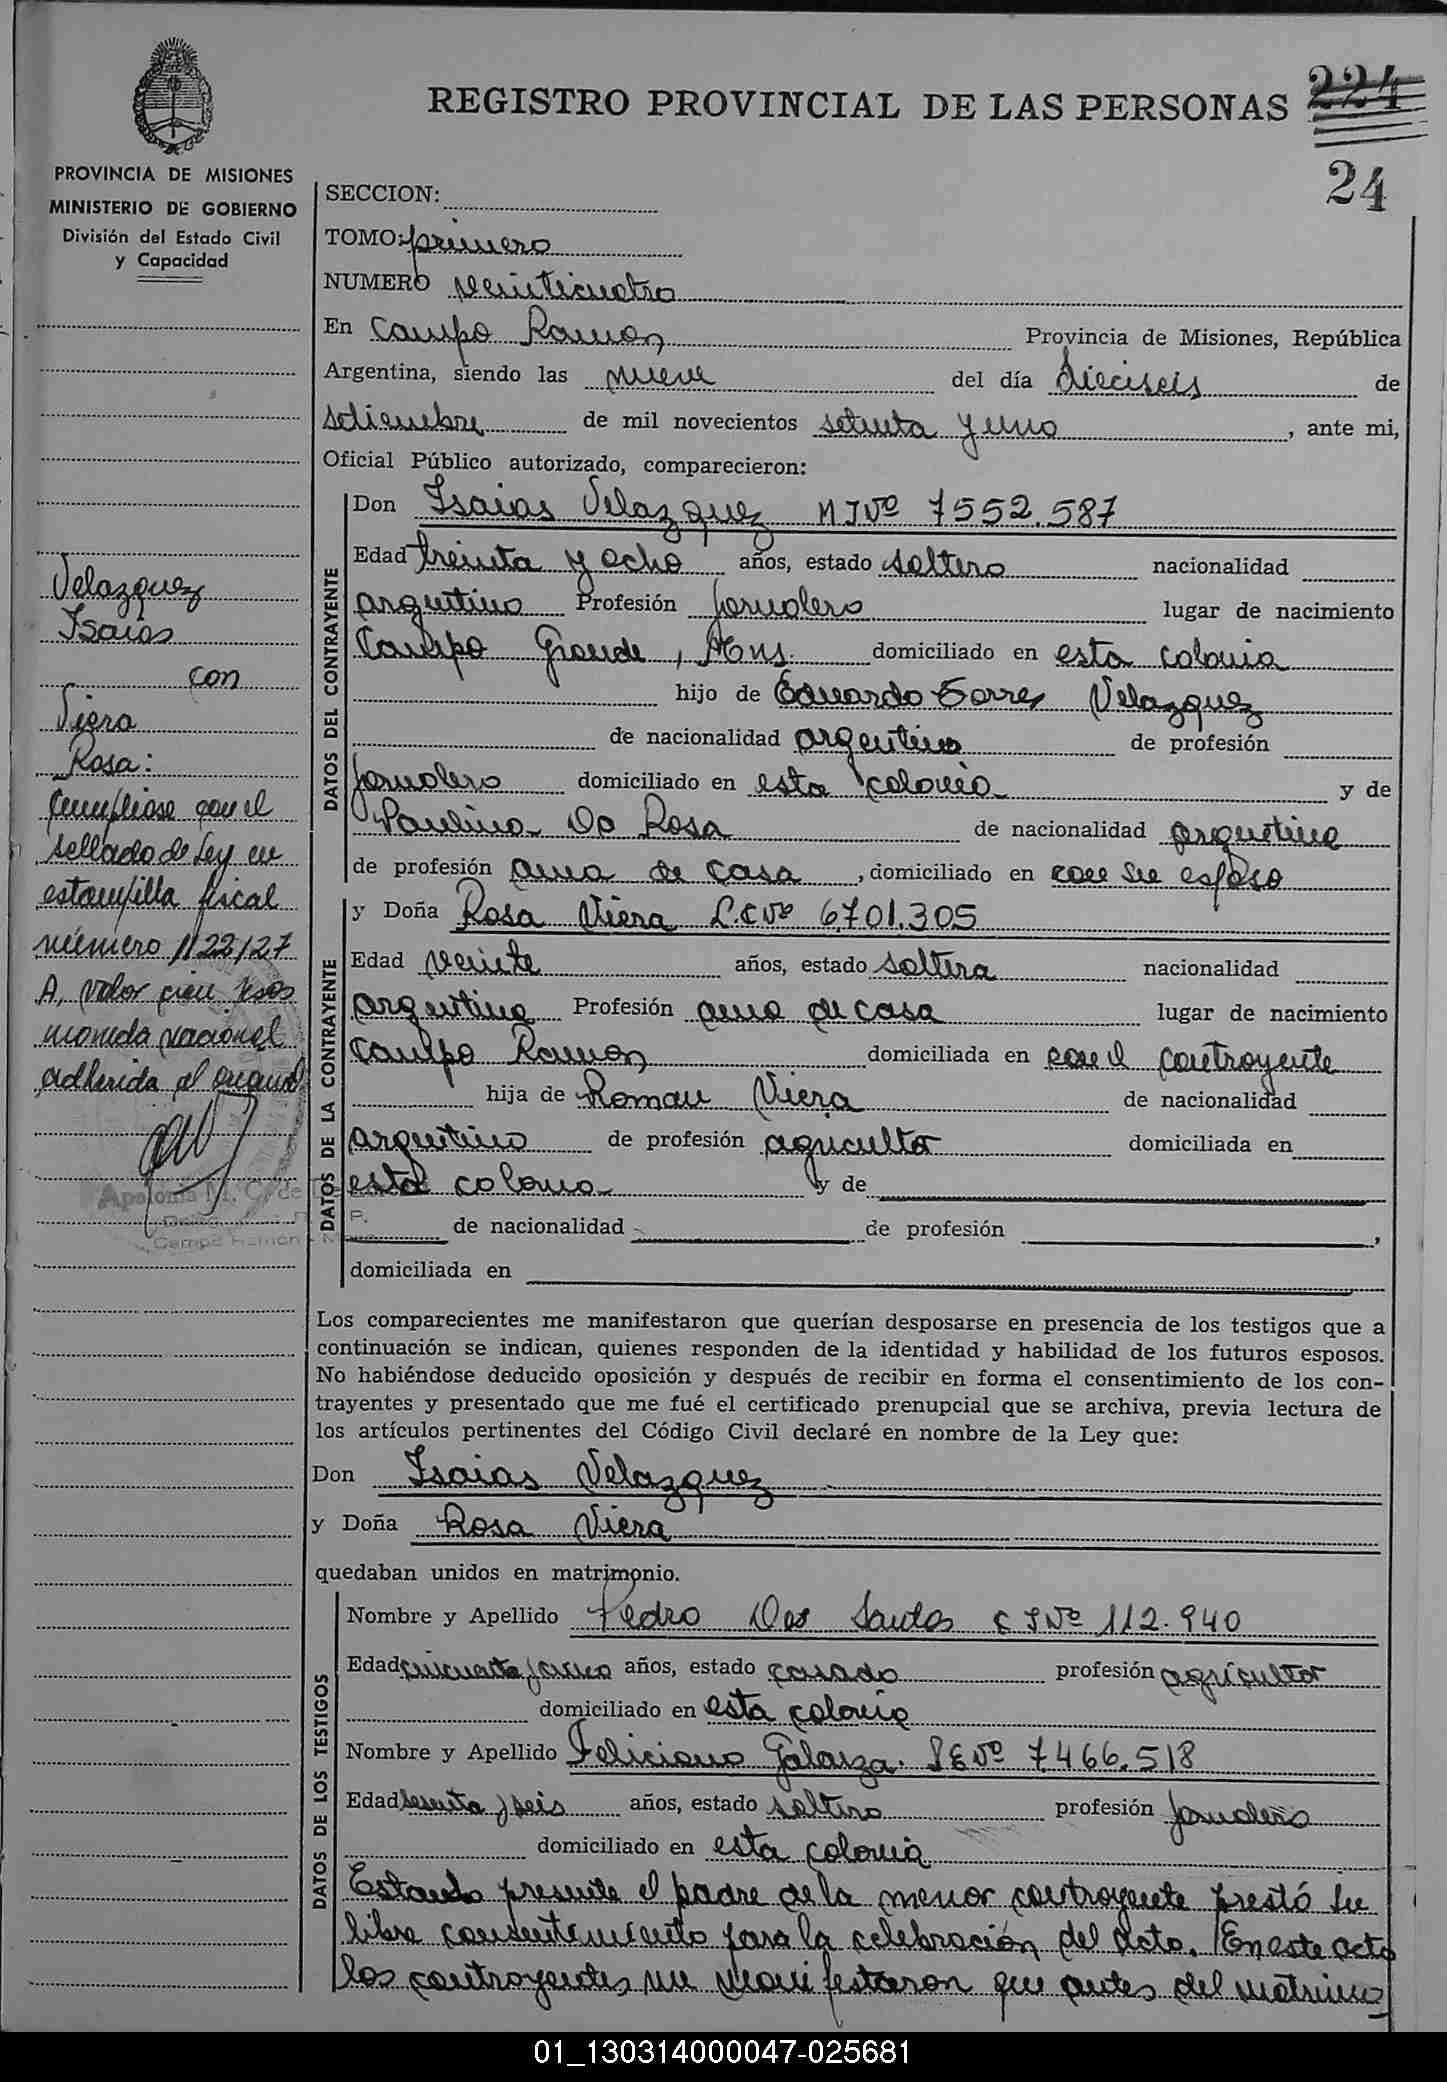 REGISTRO PROVINCIAL DE LAS PERSONAS 224
24
PROVINCIA DE MISIONES
MINISTERIO DE GOBIERNO
División del Estado Civil
y Capacidad
SECCION:
TOMO: primero
NUMERO veinticuatro
En Campo Ramon Provincia de Misiones, República
Argentina, siendo las nueve del día dieciseis de
setiembre de mil novecientos setenta y uno, ante mi,
Oficial Público autorizado, comparecieron:
DATOS DEL CONTRAYENTE
Don Isaias Velazquez M I Nº 7552.587
Edad treinta y ocho años, estado soltero nacionalidad
argentino Profesión jornalero lugar de nacimiento
Campo Grande, Mns. domiciliado en esta colonia
hijo de Eduardo Torres Velazquez
de nacionalidad argentino de profesión
jornalero domiciliado en esta colonia y de
Paulina Da Rosa de nacionalidad argentina
de profesión ama de casa, domiciliado en con su esposo
DATOS DE LA CONTRAYENTE
y Doña Rosa Viera L.C Nº 6.701.305
Edad veinte años, estado soltera nacionalidad
argentina Profesión ama de casa lugar de nacimiento
Campo Ramon domiciliada en con el contrayente
hija de Roman Viera de nacionalidad
argentino de profesión agricultor domiciliada en
esta colonia y de
de nacionalidad de profesión ,
domiciliada en
Velazquez
Isaias
con
Viera
Rosa:
Cumpliose con el
sellado de Ley en
estampilla fiscal
número 1122127
A, valor cien pesos
moneda nacional
adherida al
Apolonia M. C. de
Campo Ramón
Los comparecientes me manifestaron que querían desposarse en presencia de los testigos que a
continuación se indican, quienes responden de la identidad y habilidad de los futuros esposos.
No habiéndose deducido oposición y después de recibir en forma el consentimiento de los con-
trayentes y presentado que me fué el certificado prenupcial que se archiva, previa lectura de
los artículos pertinentes del Código Civil declaré en nombre de la Ley que:
Don Isaias Velazquez
y Doña Rosa Viera
quedaban unidos en matrimonio.
DATOS DE LOS TESTIGOS
Nombre y Apellido Pedro Dos Santos C I Nº 112.940
Edad cincuenta y cinco años, estado casado profesión agricultor
domiciliado en esta colonia
Nombre y Apellido Feliciano Galarza. L E Nº 7466.518
Edad sesenta y seis años, estado soltero profesión jornalero
domiciliado en esta colonia
Estando presente el padre de la menor contrayente prestó su
libre consentimiento para la celebración del acto. En este acto
los contrayentes me manifestaron que antes del matrimo
01_130314000047-025681